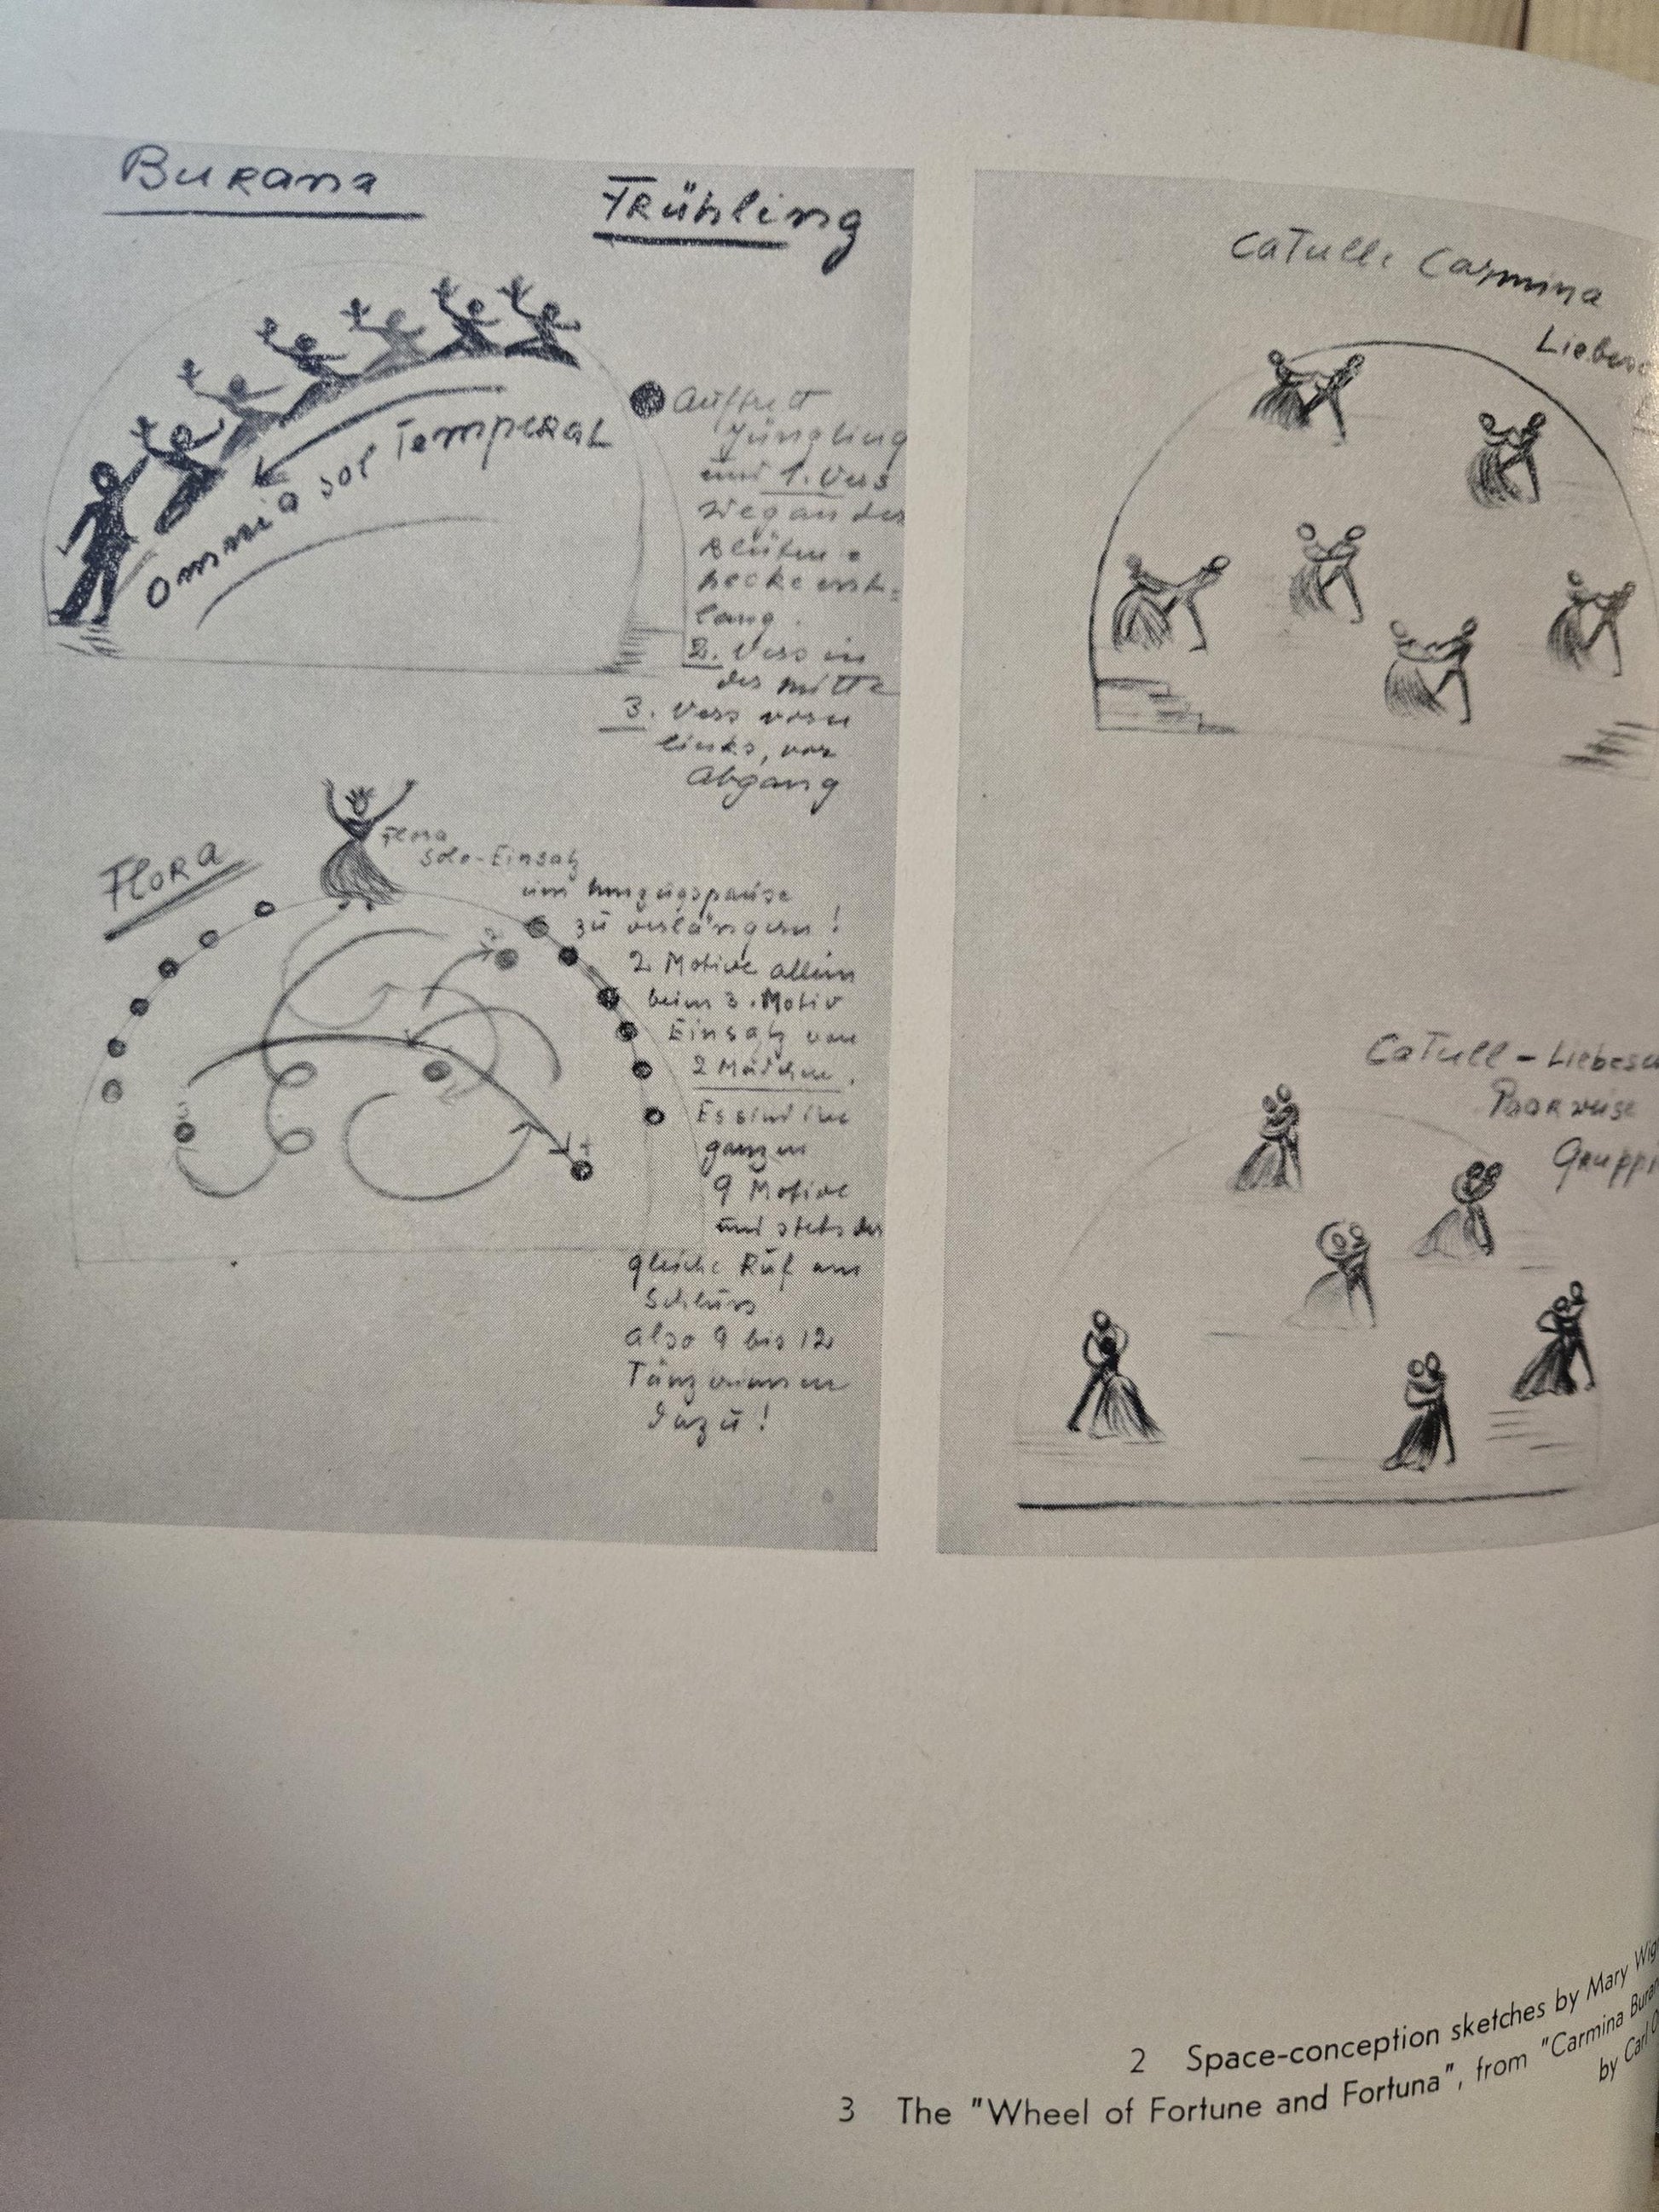 Burana
Frühling
Omnia sol Temperat
Auftritt
Jüngling
und 1. Vers
Weg an der
Blüten=
heckeentt=
lang.
2. Vers in
der Mitte
3. Vers vorn
links, vor
Abgang
Flora
Flora
Solo-Einsatz
um Umzugspause
zu verlängern!
2 Motive allein
beim 3. Motiv
Einsatz von
2 Mädchen.
Es sind im
ganzen
9 Motive
und stets der
gleiche Ruf am
Schluss
also 9 bis 12
Tänzerinnen
dazu!
2
3
4
Catulli Carmina
Catull - Liebes
Paarweise
Gruppi
2 Space-conception sketches by Mary Wig
3 The "Wheel of Fortune and Fortuna", from "Carmina Buran
by Carl O